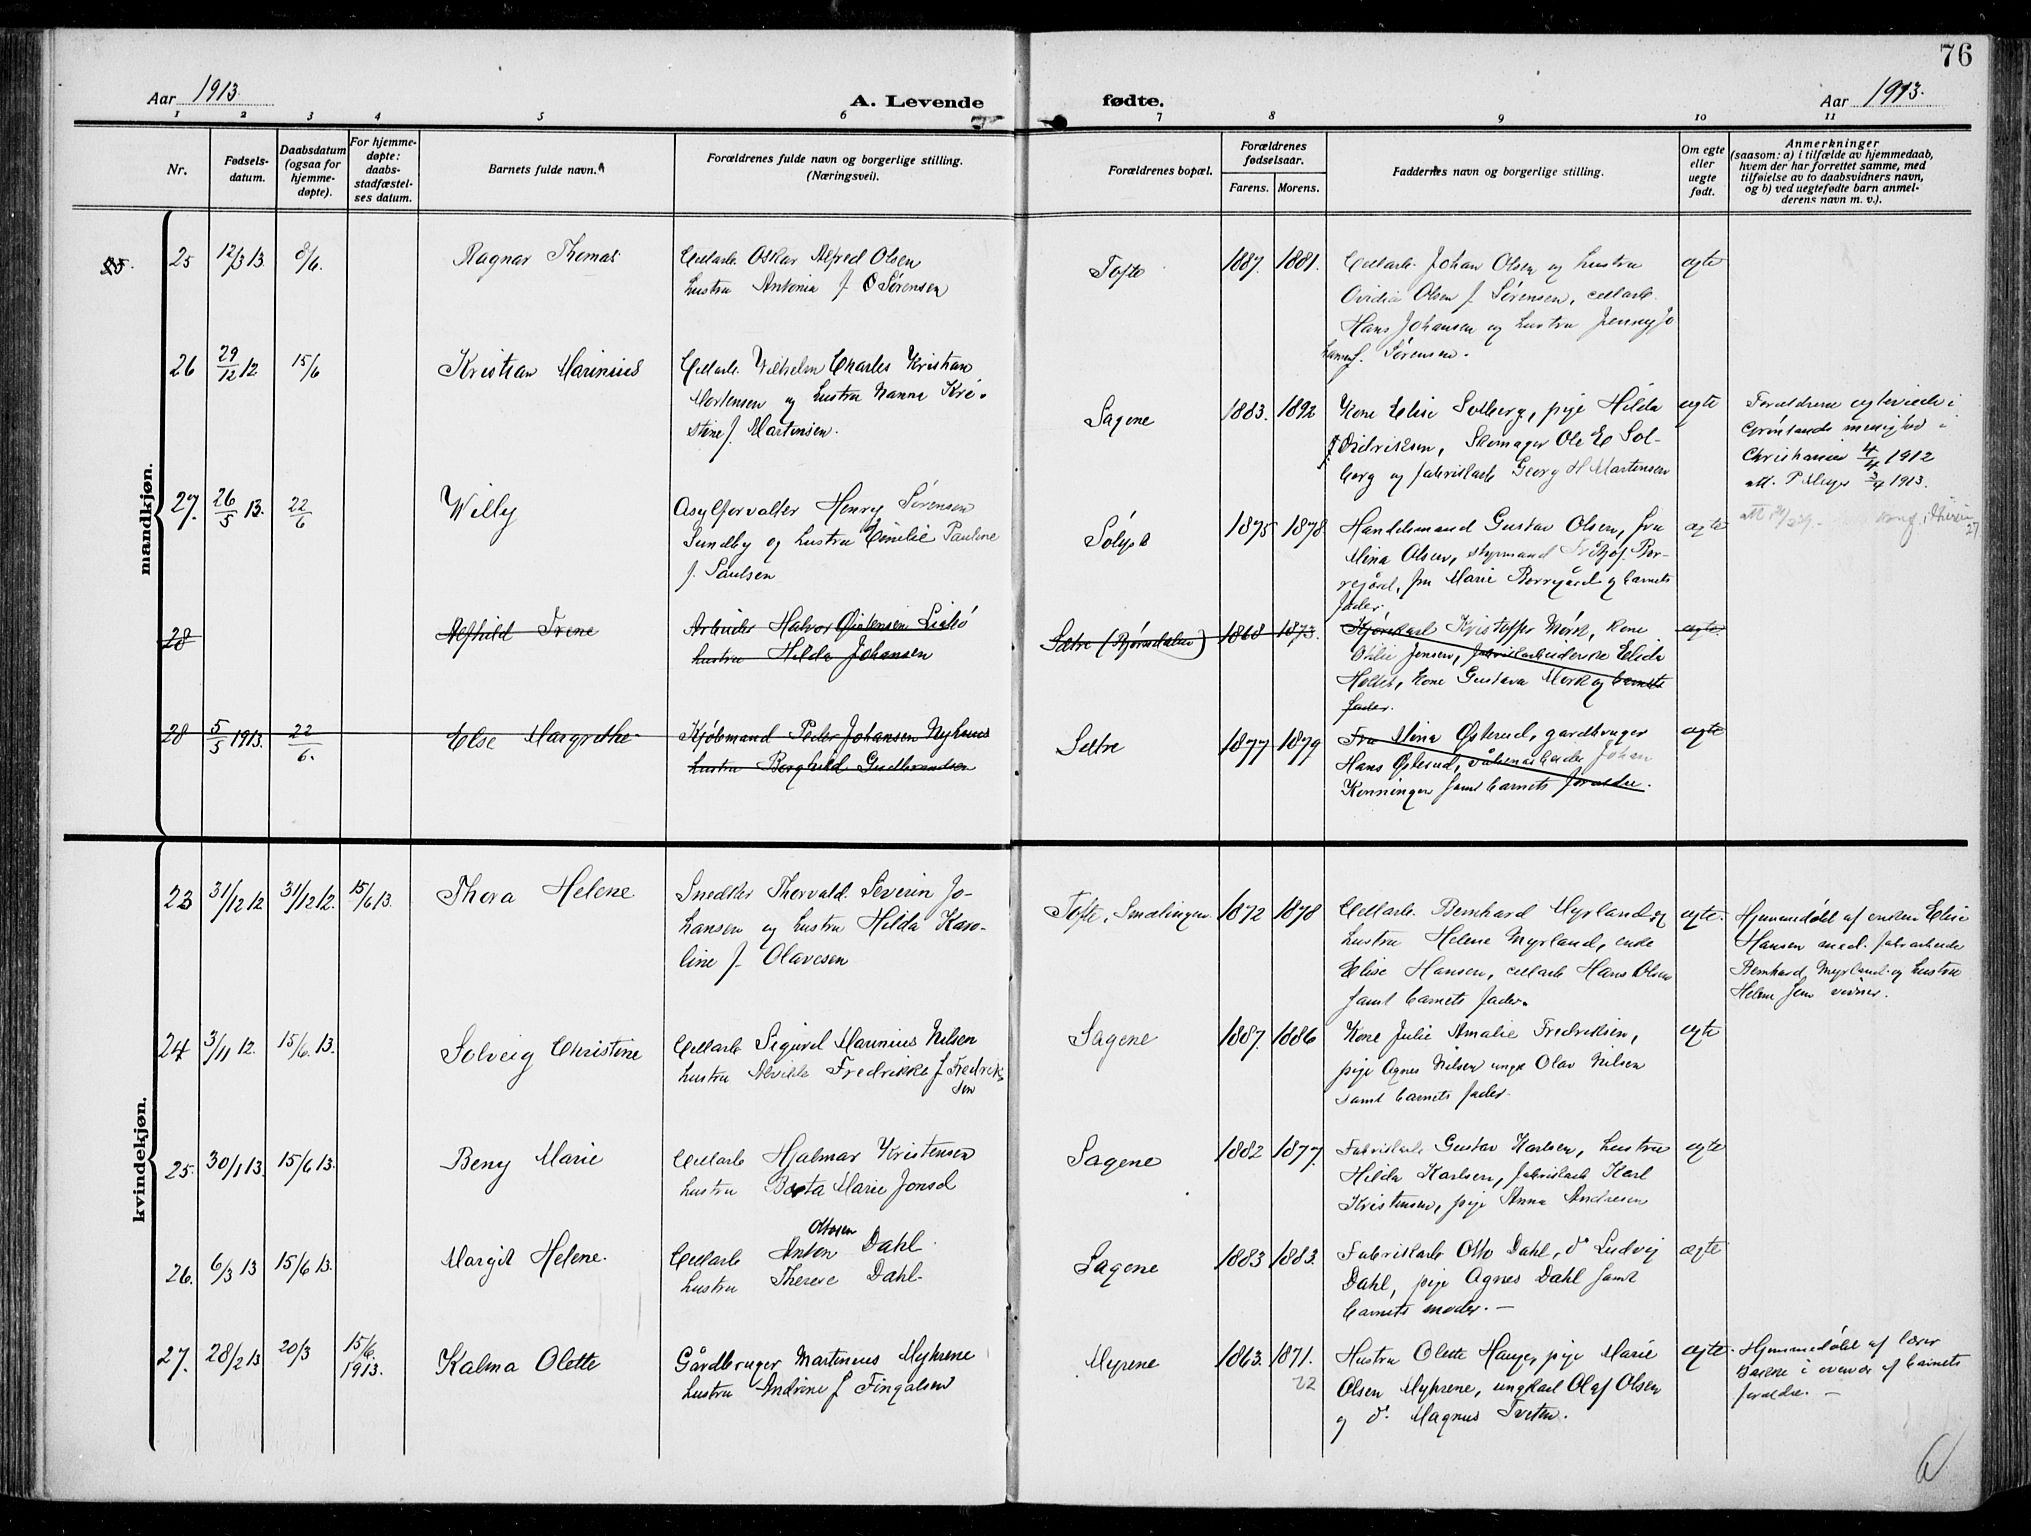 76
Aar 1913.
A. Levende fødte.
Aar 1913.
1 2 3 4 5 6 7 8 9 10 11
Nr.
Fødsels-
datum.
Daabsdatum
(ogsaa for
hjemme-
døpte).
For hjemme-
døpte:
daabs-
stadfæstel-
ses datum.
Barnets fulde navn.
Forældrenes fulde navn og borgerlige stilling.
(Næringsvei).
Forældrenes bopæl.
Forældrenes
fødselsaar.
Farens. Morens.
Faddernes navn og borgerlige stilling.
Om egte
eller
uegte
født.
Anmerkninger
(saasom: a) i tilfælde av hjemmedaab,
hvem der har forrettet samme, med
tilføielse av to daabsvidners navn,
og b) ved uegtefødte barn anmel-
derens navn m. v.).
mandkjøn.
25 12/3 13. 8/6. Ragnar Thomas
Cellarb. Oskar Alfred Olsen
hustru Antonia f. O Sørensen
Tofte 1887. 1881.
Cellarb. Johan Olsen og hustru
Ovidia Olsen f. Sørensen, cellarb.
Hans Johansen og hustru Jenny Jo
hansen f. Sørensen.
egte
26 29/12 12 15/6 Kristian Marinius
Cellarb. Wilhelm Charles Kristian
Mortensen og hustru Nanna Kri-
stine f. Martinsen.
Sagene 1883. 1892
Kone Elise Solberg, pige Hilda
Didriksen, Skomager Ole E Sol-
berg og fabrikkarb Georg H Martinsen
egte
Forældrene egteviede i
Grønlands menighed i
Christiania 4/4 1912
att. 3/4 1913.
27. 26/5 13. 22/6 Willy
Asylforvalter Henry Sørensen
Sundby og hustru Emilie Pauline
f. Paulsen
1875 1878.
Handelsmand Gustav Olsen, fru
Mina Olsen, styrmand Fritjof Bor-
regård, fru Marie Borregård og barnets
fader.
egte
28 Alfhild Irene
Arbeider Halvor
hustru Hilda Johansen
Sætre 1868 1873.
Kjørekarl Kristoffer Mørk, kone
Otilie Jensen, fabrikkarbeiderske Elida
Holter, kone Gustava Mørk og barnets
fader.
egte.
28 5/5 1913. 22/6. Else Margrethe
Kjøbmand Peder Johansen Nyhuus
hustru Borghild Gudbrandsen
Sætre 1877 1879
Fru Mina Østerud, gardbruger
Hans Østerud, Johan
Kønninger samt barnets forældre.
egte
kvindekjøn.
23 31/12 12 31/12 12. 15/6 13. Thora Helene
Snedker Thorvald Severin Jo-
hansen og hustru Hilda Karo-
line f. Olavesen
Tofte, Smalingen 1872 1878
Cellarb. Bernhard Myrland og
hustru Helene Myrland, enke
Elise Hansen, cellarb Hans Olsen
samt barnets fader.
egte.
Hjemmedøbt af enken Elise
Hansen med fabrarbeider
Bernhard Myrland og hustru
Helene som vidner.
24 3/11 12. 15/6. 13. Solveig Christine
Cellarb Sigurd Marinius Nilsen
hustru Alvilde Fredrikke f Fredrik-
sen
Sagene 1887. 1886
Kone Julie Amalie Fredriksen,
pige Agnes Nilsen ungk Olav Nilsen
samt barnets fader.
egte
25. 30/1 13. 15/6 13. Beny Marie
Cellarb Hjalmar Kristensen
hustru Berta Marie Jonsd
Sagene 1882 1877.
Fabrikkarb Gustav Karlsen, hustru
Hilda Karlsen, fabrikkarb Karl
Kristensen, pige Anna Andresen
egte
26. 6/3 13 15/6 13. Margit Helene.
Ottosen
Cellarb Anton Dahl.
hustru Therese Dahl.
Sagene 1883 1883.
Fabrikkarb Otto Dahl, do Ludvig
Dahl, pige Agnes Dahl samt
barnets moder. —
egte
27. 28/2 13 20/3 15/6. 1913. Kalma Olette
Gårdbruger Martinius Myhrene
hustru Andrine f Fingalsen
Myrene 1863. 1871.
22
Hustru Olette Hauge, pige Marie
Olsen Myhrene, ungkarl Olaf Olsen
og do. Magnus Tveten.
egte.
Hjemmedøbt af lærer
i overvær af barnets
forældre. —